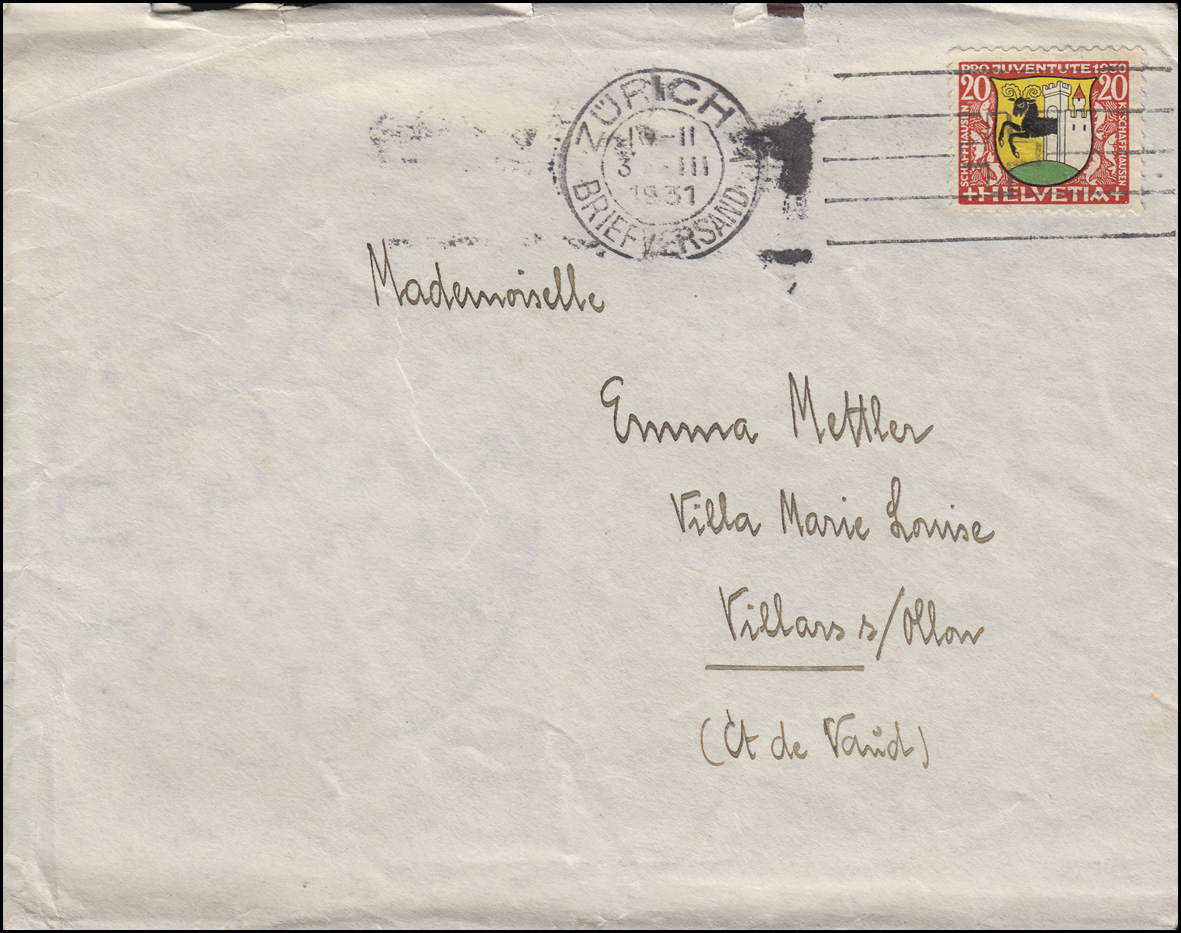 ZÜRICH
-II
3 -III
1931
BRIEFVERSAND
PRO JUVENTUTE 1930
20 20
SCHAFFHAUSEN
SCHAFFHAUSEN
+HELVETIA+
Mademoiselle
Emma Mettler
Villa Marie Louise
Villars s/Ollon
(Ct de Vaud)